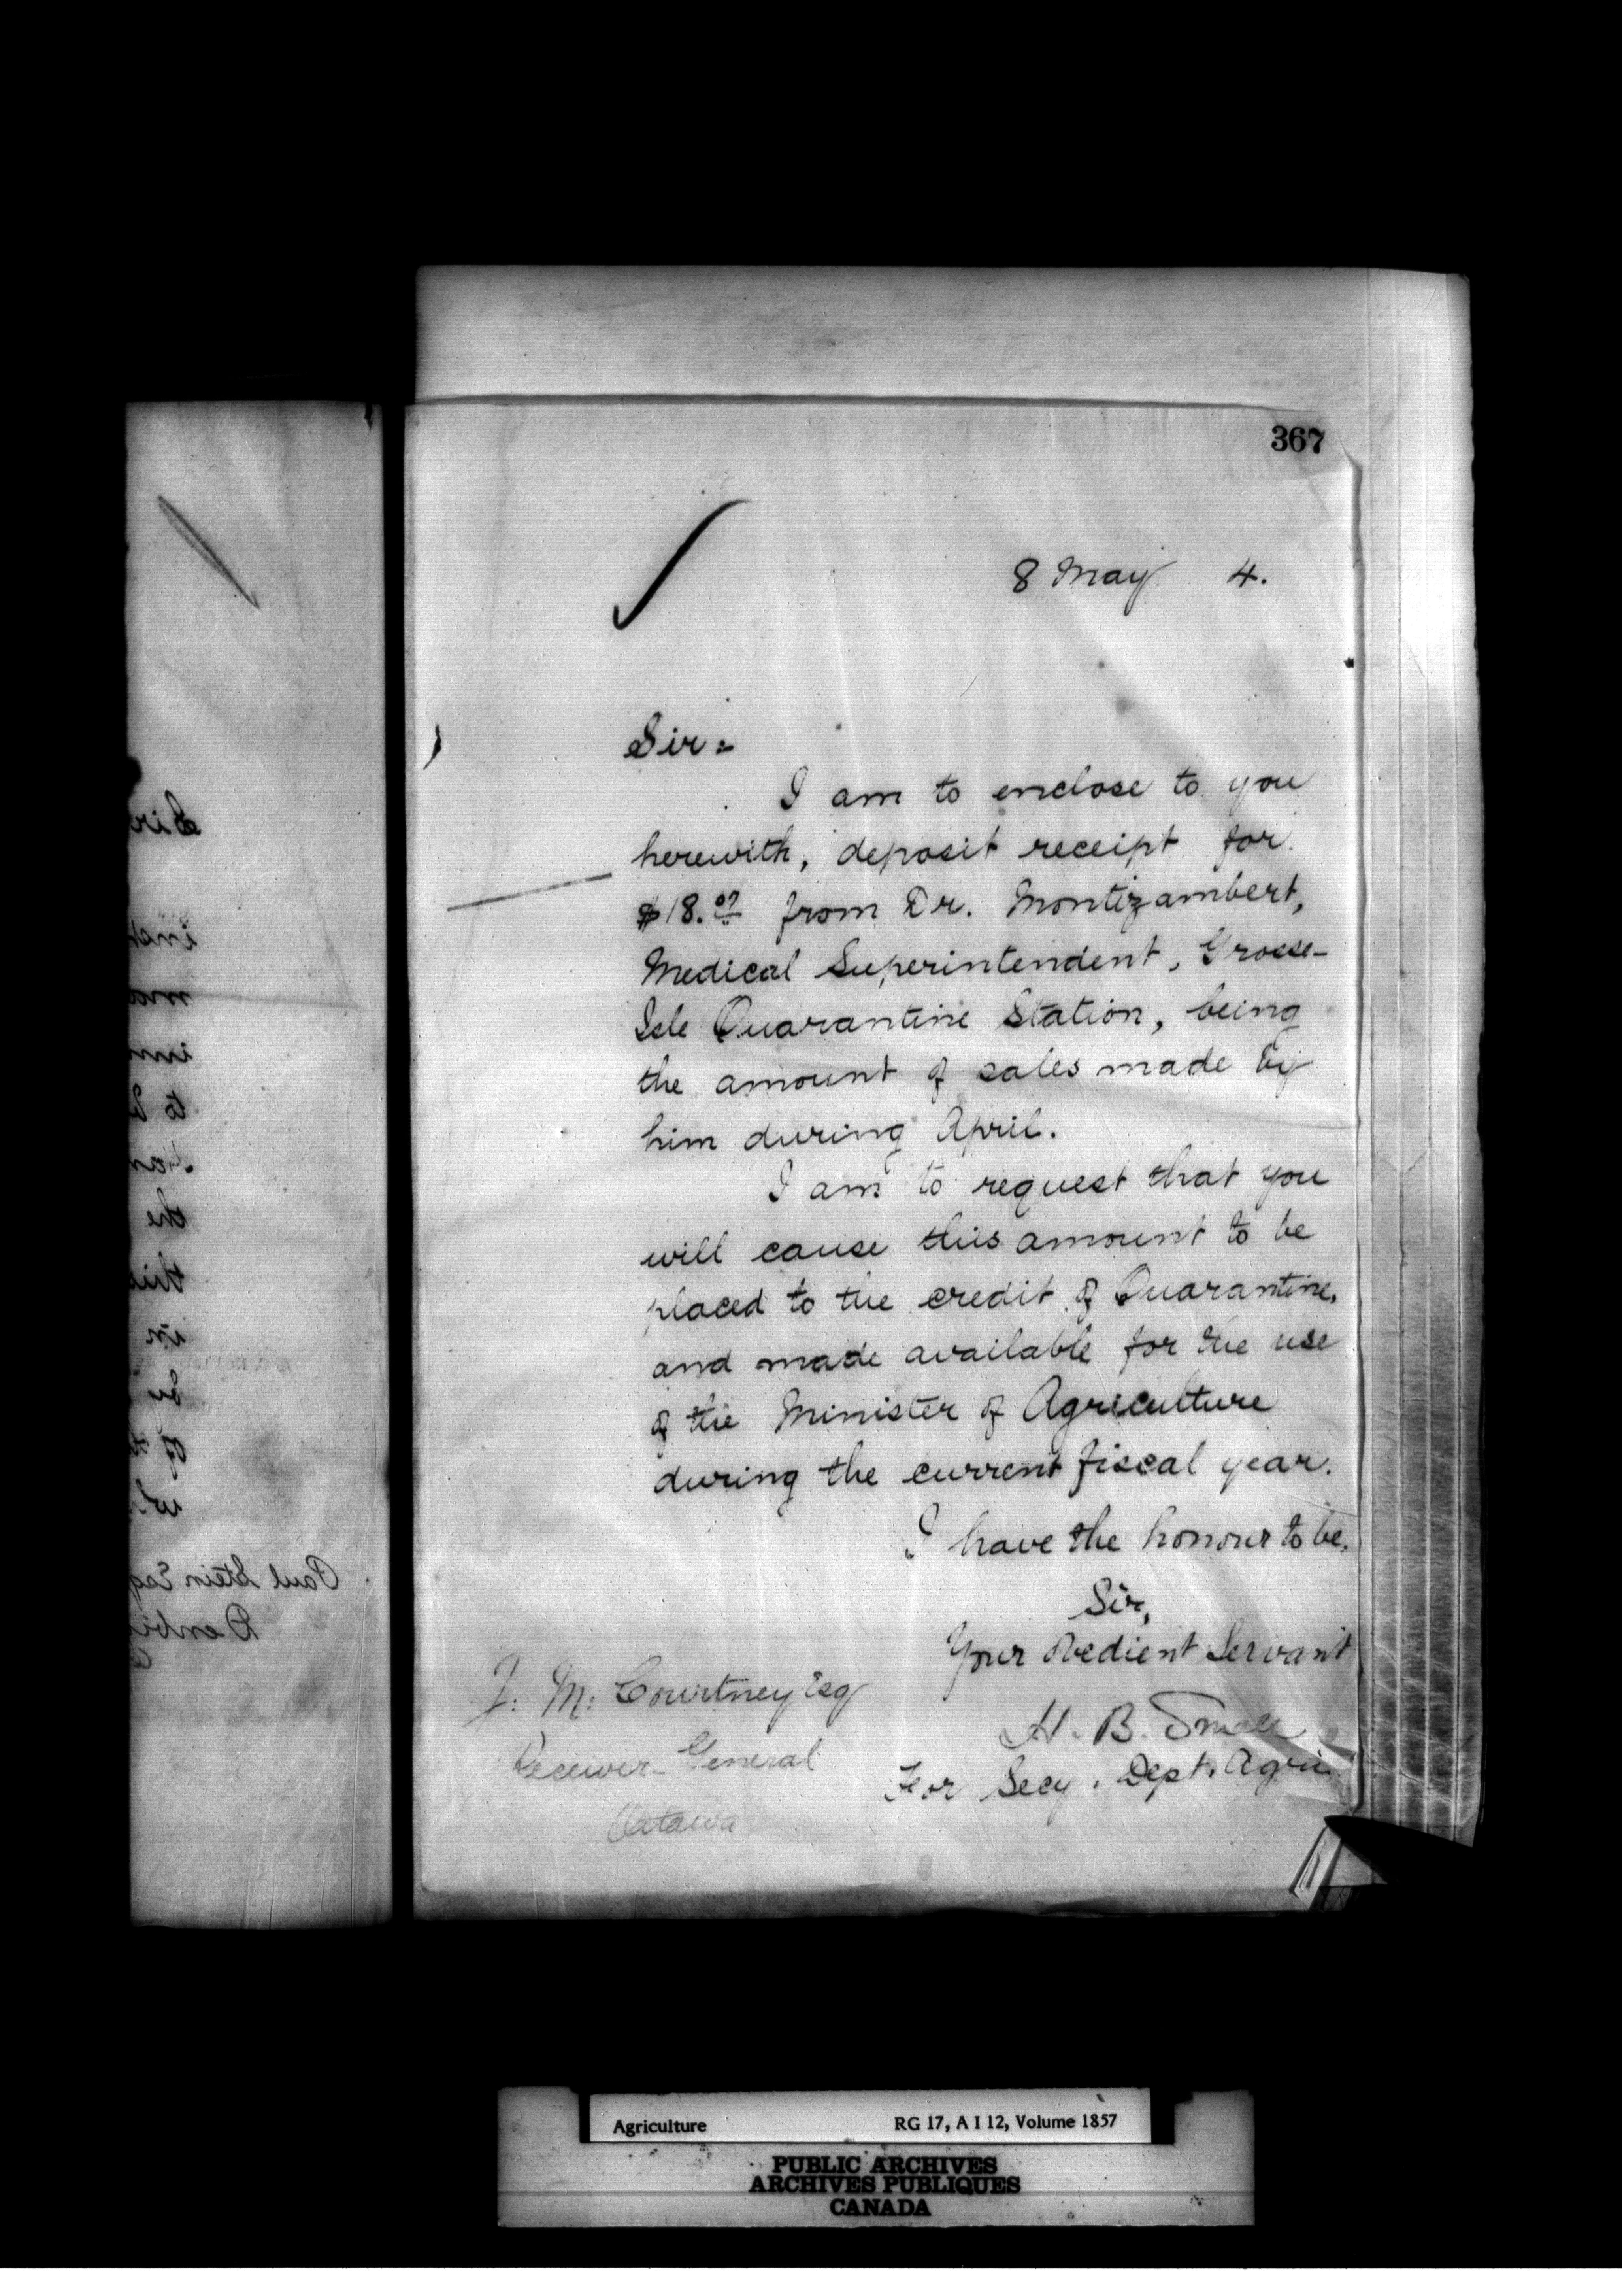 367
8 May 4.
Sir:
I am to enclose to you
herewith, deposit receipt for
$18.07 from Dr. Montizambert,
Medical Superintendent, Grosse-
Isle Quarantine Station, being
the amount of sales made by
him during April.
I am to request that you
will cause this amount to be
placed to the credit of Quarantine,
and made available for the use
of the Minister of Agriculture
during the current fiscal year.
I have the honour to be,
Sir,
Your Obedient Servant
H. B. Small
For Secy. Dept. Agric
J. M. Courtney Esq
Receiver-General
Ottawa
Paul Stein Esq
Agriculture RG 17, A I 12, Volume 1857
PUBLIC ARCHIVES
ARCHIVES PUBLIQUES
CANADA